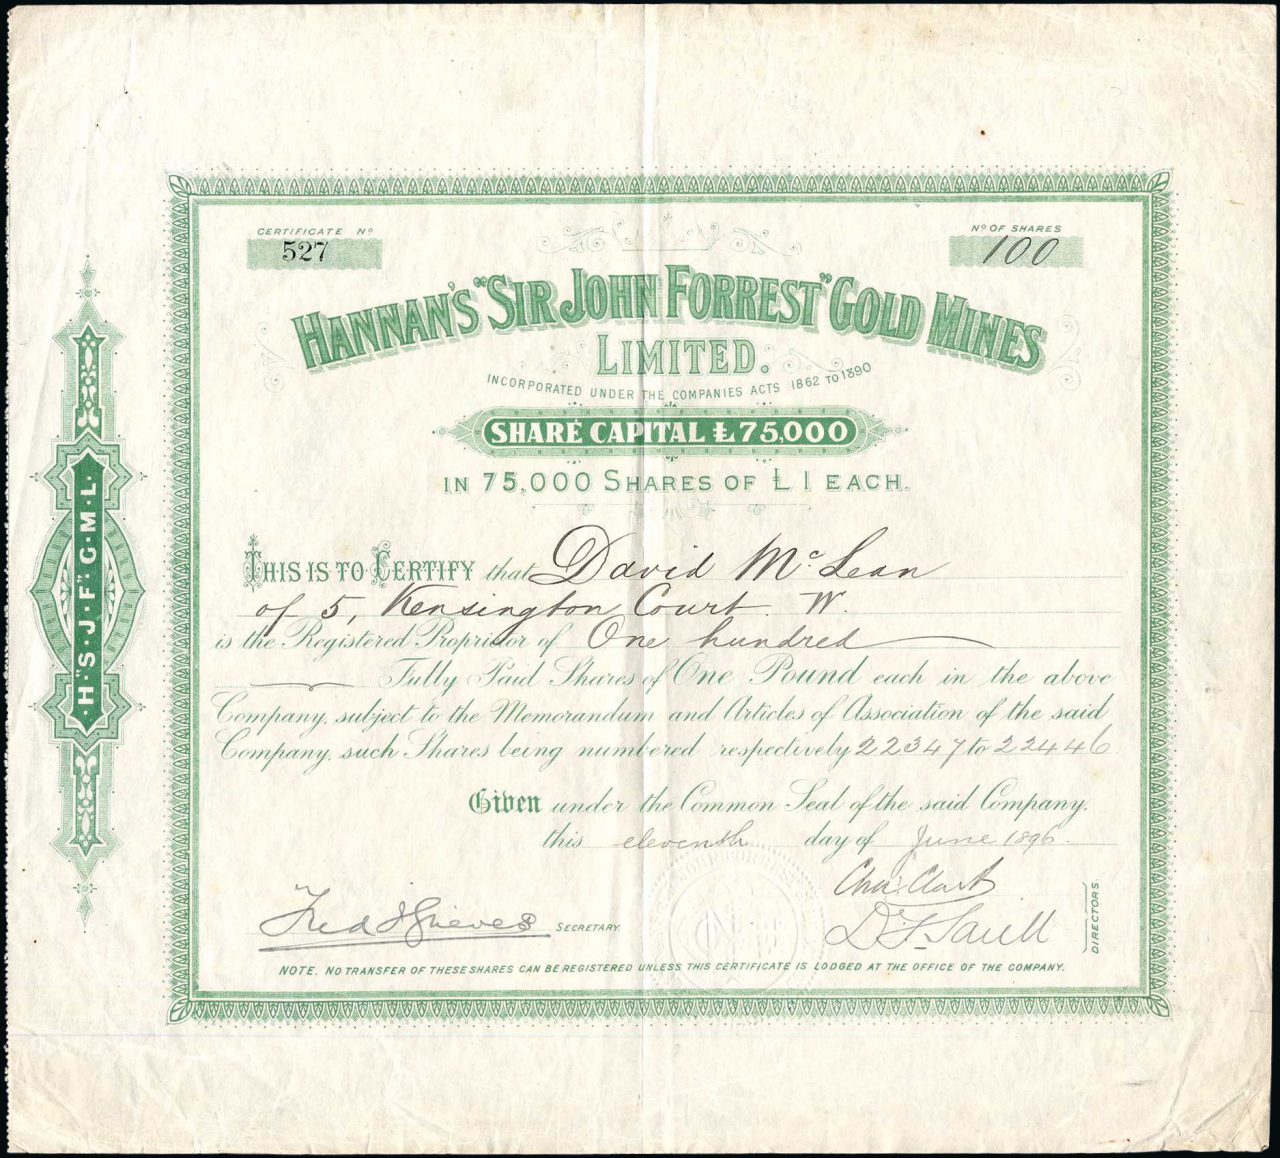 CERTIFICATE Nº
527
Nº OF SHARES
100
HANNAN'S "SIR JOHN FORREST" GOLD MINES
LIMITED.
INCORPORATED UNDER THE COMPANIES ACTS 1862 TO 1890
SHARE CAPITAL £75,000
IN 75,000 SHARES OF £1 EACH.
THIS IS TO CERTIFY that David McLean
of 5, Kensington Court W.
is the Registered Proprietor of One hundred
Fully Paid Shares of One Pound each in the above
Company, subject to the Memorandum and Articles of Association of the said
Company, such Shares being numbered respectively 22347 to 22446
Given under the Common Seal of the said Company.
this eleventh day of June 1896.
Chas. Clark
Fred J Grieves SECRETARY.
DIRECTORS
NOTE. NO TRANSFER OF THESE SHARES CAN BE REGISTERED UNLESS THIS CERTIFICATE IS LODGED AT THE OFFICE OF THE COMPANY.
H."S.J.F"G.M.L.